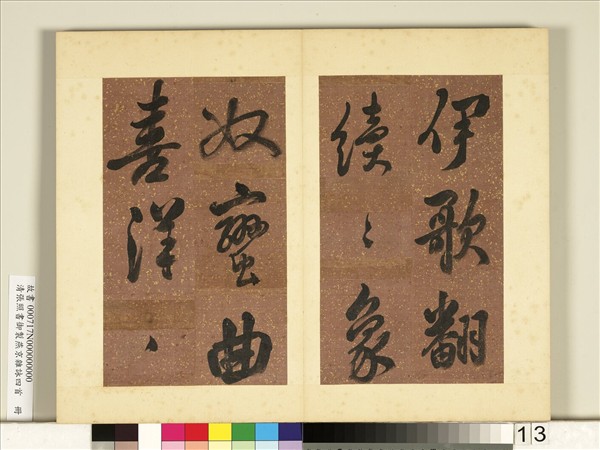 伊歌翻
續〻象
奴蠻曲
喜洋〻
故書000717N000000000
清張照書御製燕京雜詠四首 冊
13